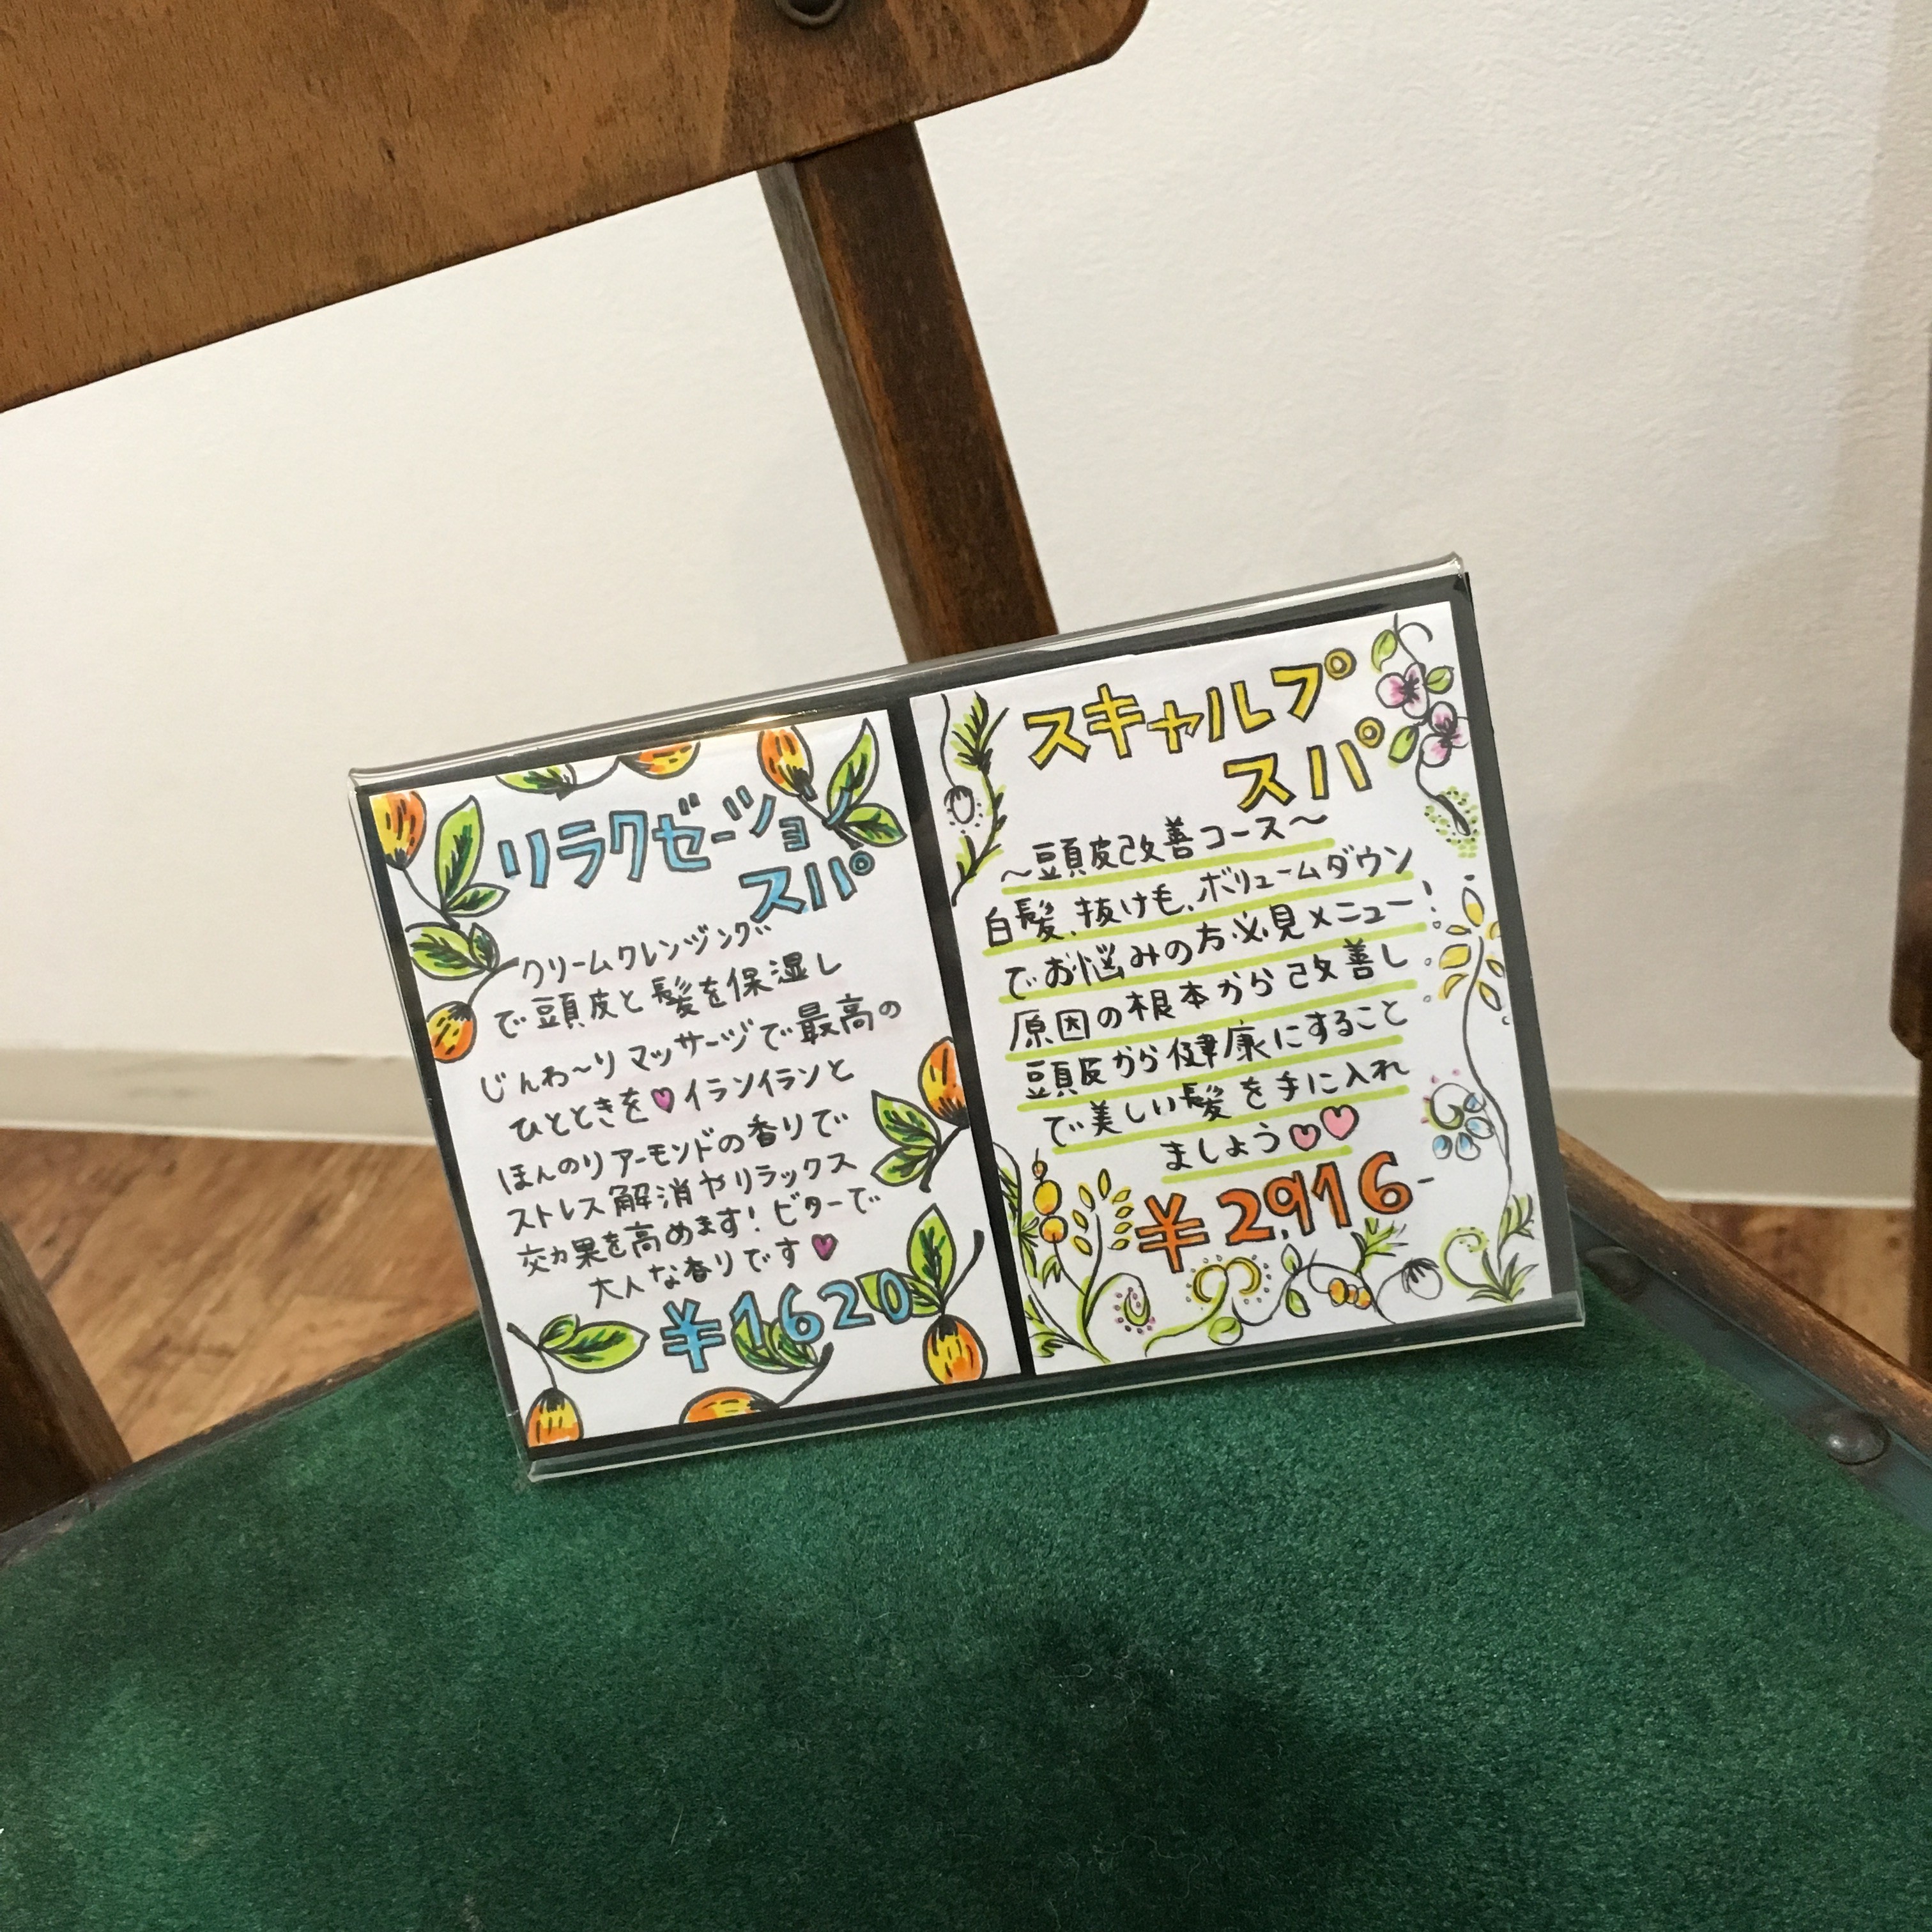 リラクゼーション
スパ
クリームクレンジング
で頭皮と髪を保湿し
じんわ〜りマッサージで最高の
ひとときを♥イランイランと
ほんのりアーモンドの香りで
ストレス解消やリラックス
効果を高めます！ビターで
大人な香りです♥
¥1620
スキャルプ
スパ
〜頭皮改善コース〜
白髪、抜け毛、ボリュームダウン
でお悩みの方必見メニュー！
原因の根本から改善し
頭皮から健康にすること
で美しい髪を手に入れ
ましょう♡♡
¥2,916-